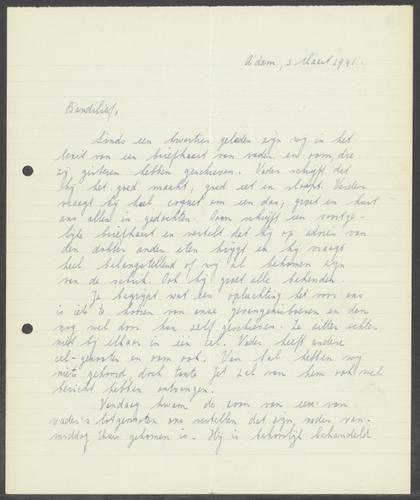 A'dam, 3 Maart 1941.
Bandilief,
Sinds een kwartier geleden zijn wij in het
bezit van een briefkaart van vader en oom, die
zij gisteren hebben geschreven. Vader schrijft dat
hij het goed maakt, goed eet en slaapt. Verder
vraagt hij heel om een das, groet en kust
ons allen in gedachten. Oom schrijft een
briefkaart en vertelt dat hij op advies van
den dokter ander eten krijgt en hij vraagt
heel belangstellend of wij al bekomen zijn
van de schrik. Ook hij groet alle bekenden.
Je begrijpt wat een opluchting het voor ons
is iets te horen van onze gevangenbroeren en dan
nog wel door hun zelf geschreven. Ze zitten echter
niet bij elkaar in een cel. Vader heeft andere
cel-genoten en oom ook. Van hebben wij
niets gehoord, doch tante zal van hem ook wel
bericht hebben ontvangen.
Vandaag kwam de zoon van een van
vader's lotgenoten ons vertellen dat zijn vader van-
middag thuis gekomen is. Hij is behoorlijk behandeld